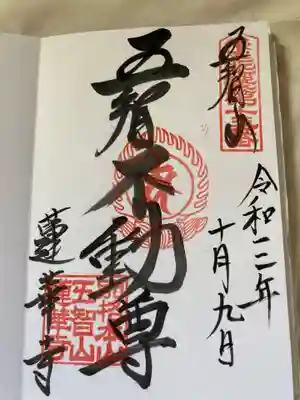 五智山
令和二年
十月九日
五智不動尊
蓮華寺
五智山
蓮華寺